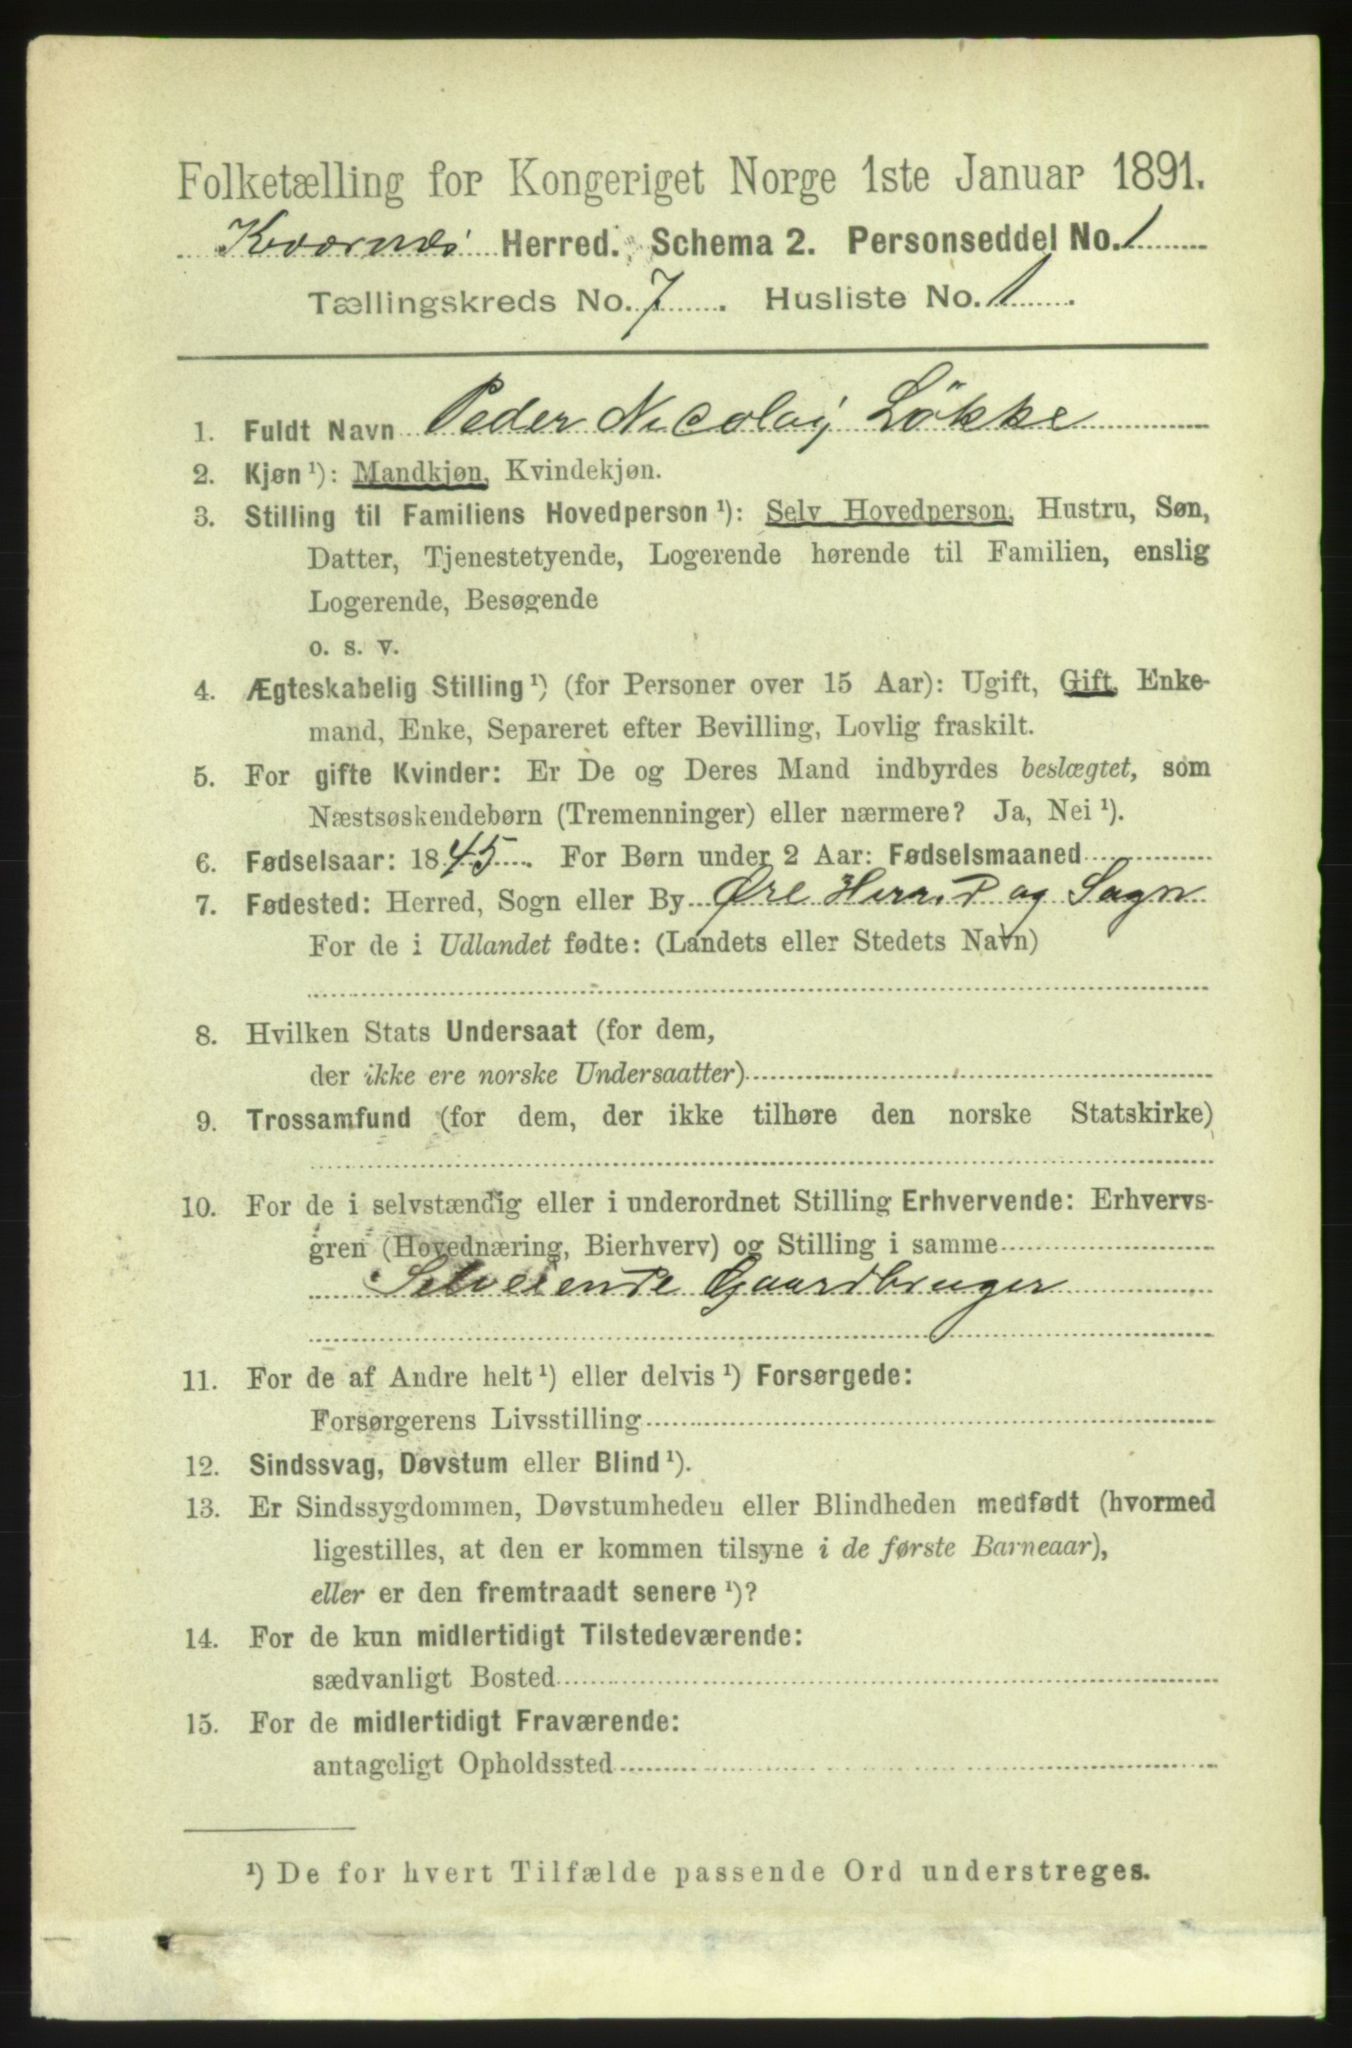 Folketælling for Kongeriget Norge 1ste Januar 1891.
Kværnes Herred. Schema 2. Personseddel No. 1
Tællingskreds No. 7. Husliste No. 1.
1. Fuldt Navn Peder Nicolaj Løkke
2. Kjøn ¹): Mandkjøn, Kvindekjøn.
3. Stilling til Familiens Hovedperson ¹): Selv Hovedperson, Hustru, Søn,
Datter, Tjenestetyende, Logerende hørende til Familien, enslig
Logerende, Besøgende
o. s. v.
4. Ægteskabelig Stilling ¹) (for Personer over 15 Aar): Ugift, Gift, Enke-
mand, Enke, Separeret efter Bevilling, Lovlig fraskilt.
5. For gifte Kvinder: Er De og Deres Mand indbyrdes beslægtet, som
Næstsøskendebørn (Tremenninger) eller nærmere? Ja, Nei ¹).
6. Fødselsaar: 1845. For Børn under 2 Aar: Fødselsmaaned
7. Fødested: Herred, Sogn eller By Øre Herred og Sogn
For de i Udlandet fødte: (Landets eller Stedets Navn)
8. Hvilken Stats Undersaat (for dem,
der ikke ere norske Undersaatter)
9. Trossamfund (for dem, der ikke tilhøre den norske Statskirke)
10. For de i selvstændig eller i underordnet Stilling Erhvervende: Erhvervs-
gren (Hovednæring, Bierhverv) og Stilling i samme
Selveiende Gaardbruger
11. For de af Andre helt ¹) eller delvis ¹) Forsørgede:
Forsørgerens Livsstilling
12. Sindssvag, Døvstum eller Blind ¹).
13. Er Sindssygdommen, Døvstumheden eller Blindheden medfødt (hvormed
ligestilles, at den er kommen tilsyne i de første Barneaar),
eller er den fremtraadt senere ¹)?
14. For de kun midlertidigt Tilstedeværende:
sædvanligt Bosted
15. For de midlertidigt Fraværende:
antageligt Opholdssted
¹) De for hvert Tilfælde passende Ord understreges.